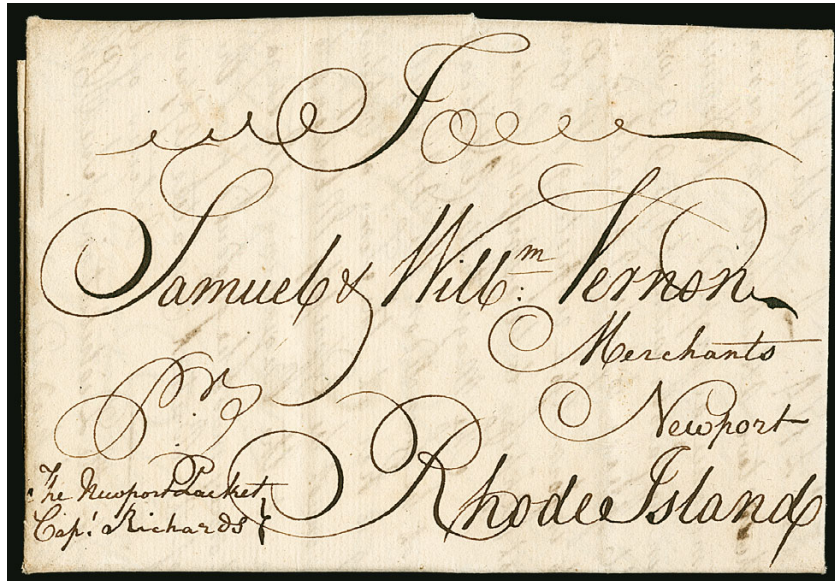 To
Samuel & Will^m: Vernon
Merchants
Newport
Rhode Island
Pr
The Newport Packet
Cap^t: Richards